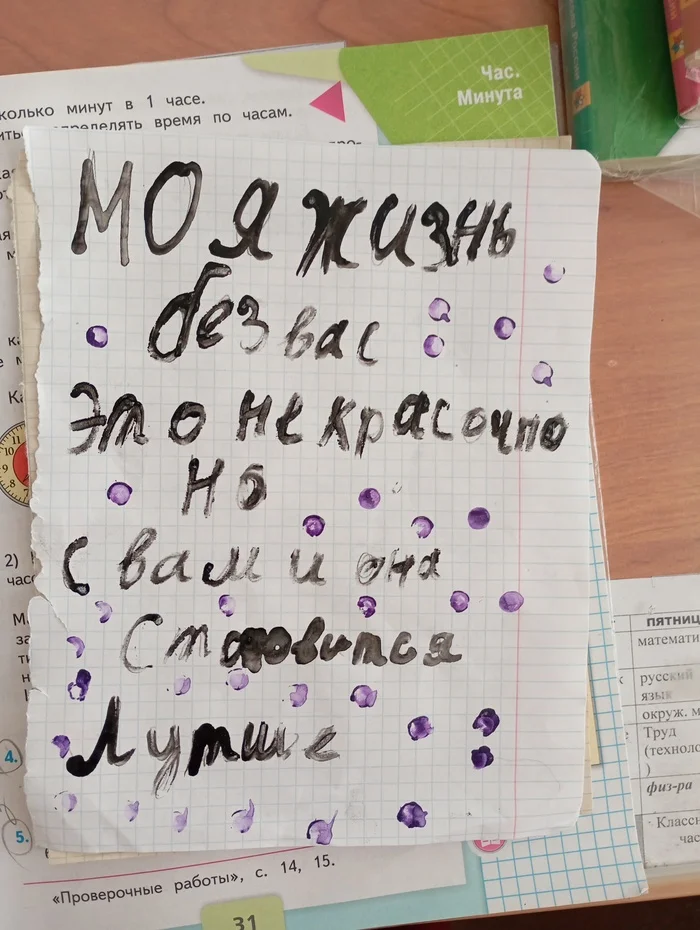 колько минут в 1 часе.
определять время по часам.
Час.
Минута
МОЯ жизнь
без вас
это не красочно
но
с вами она
становится
Лутше
10
11
9
8
2)
4.
5.
«Проверочные работы», с. 14, 15.
31
ПЯТНИЦ
математи
русский
язык
окруж. м
Труд
(технол
)
физ-ра
Классн
час